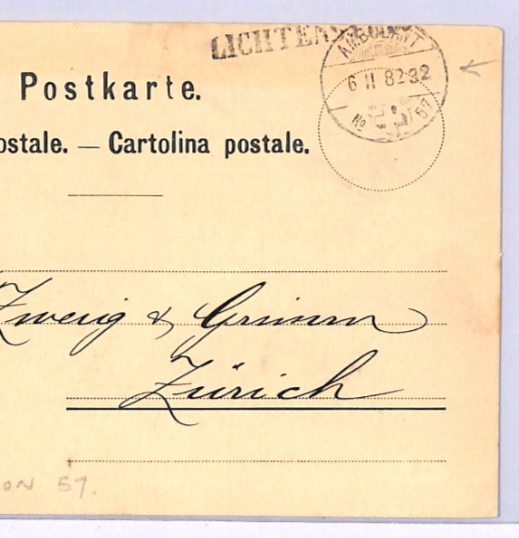 LICHTENSTEIG
AMBULANT
6 II 82-32
No 57
Postkarte.
ostale. — Cartolina postale.
Zweig & Grimm
Zürich
ON 57.